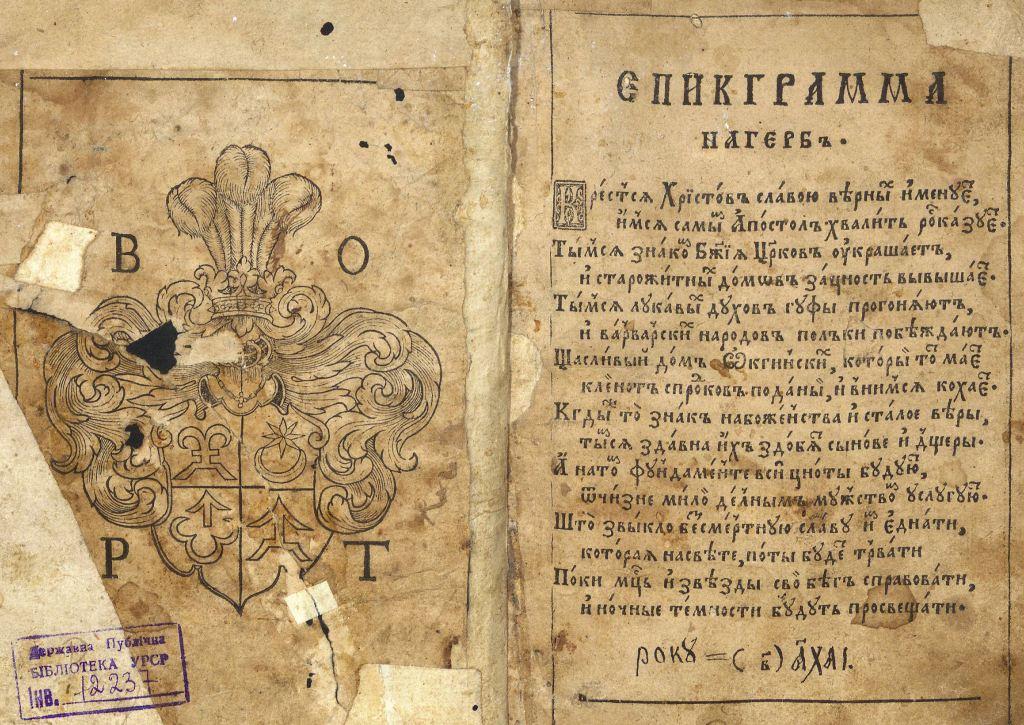 В О
Р Т
Державна Публічна
БІБЛІОТЕКА УРСР
ІНВ. 12237
ЄПИКГРАММА
НАГЕРБЪ.
Крестⷭ҇ся Хрїстовъ славою вѣрныⷨ именуеⷮ,
и҆мся самыⷨ Апостолъ хвалитъ роⷭ҇казуеⷮ.
Тымся знакоⷨ Бж҃їѧ Црⷪ҇ковъ оукрашаетъ,
и старожитныⷯ домѡвъ зацность вывышаеⷮ.
Тымся лукавыⷯ духов гуфы прогоняютъ,
и варварскиⷯ народов полъки побѣждаютъ.
Щасливый домъ Ѡкгинскиⷨ, которыⷨ тоⷨ маеⷮ
клѐнотъ спроⷪковъ поданыⷨ, и внимся кохаеⷮ.
Кгды тоⷨ знакъ набоженства и сталое вѣры,
тыⷨся здавна ихъ здобяⷮ сынове и дщеры.
А натоⷨ фундаменте всиⷨ цноты будуюⷮ,
ѿчизне милоⷨ делнымъ мужствоⷨ услугуюⷮ.
Што звыкло бесмертную славу иⷨ еднати,
которая насвѣте, поты будеⷮ трвати
Поки мцⷭ҇ь и звѣзды своⷨ бѣгъ справовати,
и ночные темности будутъ просвещати.
року = (б) АХАІ.